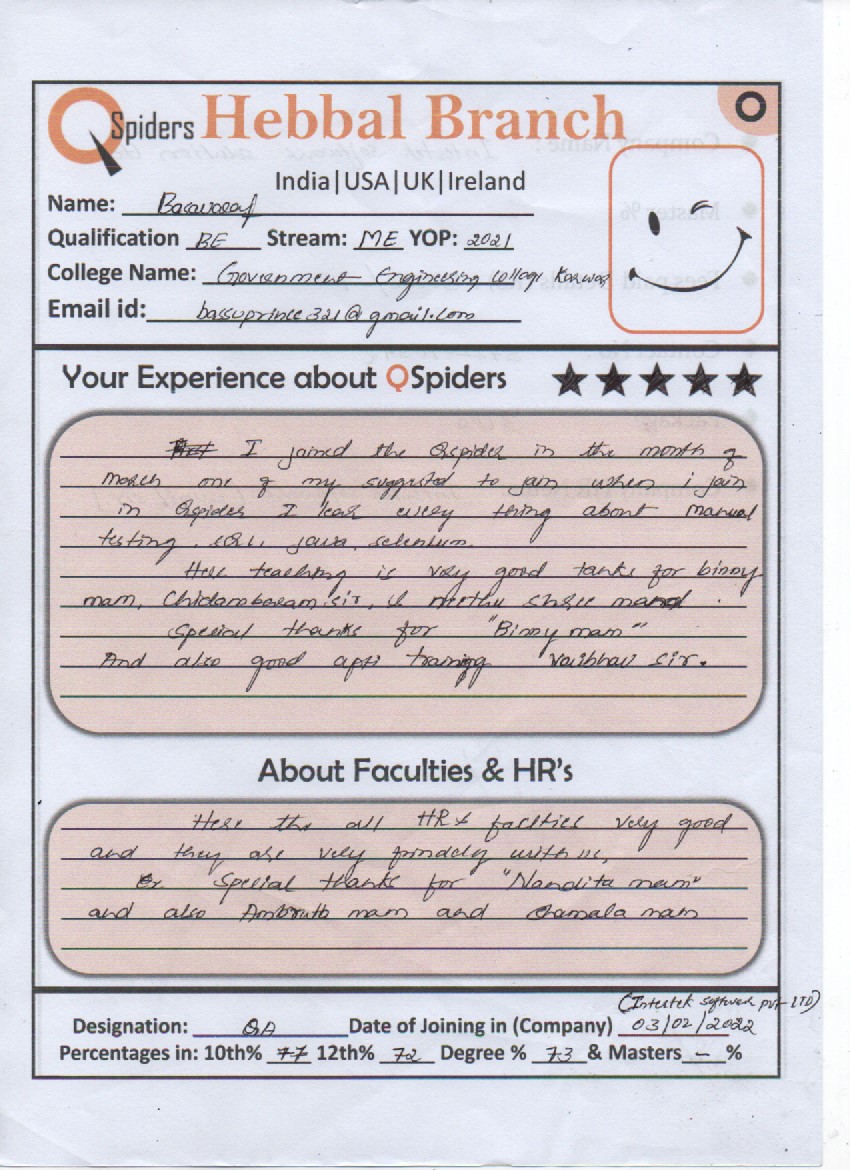 QSpiders Hebbal Branch
India|USA|UK|Ireland
Name: Basavaraj
Qualification BE Stream: ME YOP: 2021
College Name: Government Engineering college Karwar
Email id: bassuprince321@gmail.com
Your Experience about QSpiders
I joined the Qspider in the month of
March one of my suggested to join when i join
in Qspider I lear every thing about manual
testing, SQL, java, selenium.
Here teaching is very good tanks for binny
mam, Chidambaram sir, methu shree
Special thanks for "Binny mam"
And also good apti training vaibhav sir.
About Faculties & HR's
Here the all HR & faclties very good
and they are very frindely with us,
Special thanks for "Nandita mam"
and also Ambruth mam and Chamala mam
(Intertek Software pvt LTD)
Designation: QA Date of Joining in (Company) 03/02/2022
Percentages in: 10th% 77 12th% 72 Degree % 73 & Masters - %